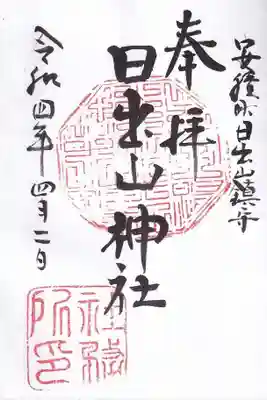 安積町日出山鎮守
奉拝
日出山神社
令和四年四月二日